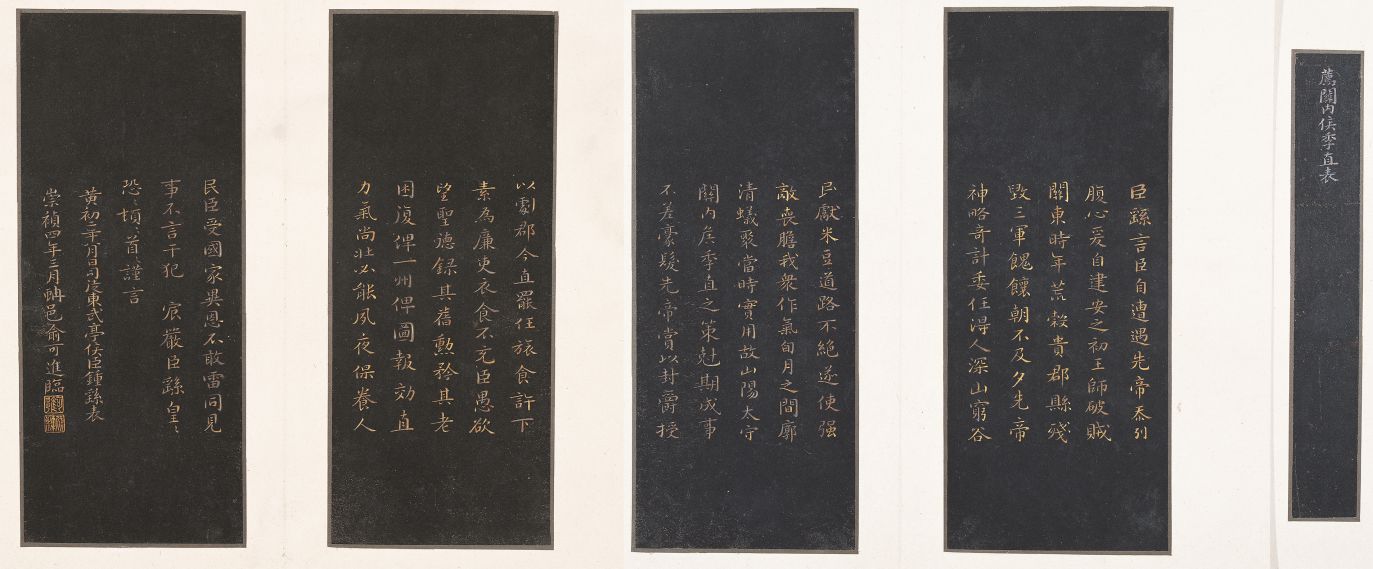 薦關內侯季直表
臣繇言臣自遭遇先帝忝列
腹心爰自建安之初王師破賊
關東時年荒穀貴郡縣殘
毀三軍餽饟朝不及夕先帝
神略奇計委任得人深山窮谷
民獻米豆道路不絕遂使強
敵喪膽我衆作氣旬月之間廓
清蟻聚當時實用故山陽太守
關內侯季直之策剋期成事
不差豪髮先帝賞以封爵授
以劇郡今直罷任旅食許下
素為廉吏衣食不充臣愚欲
望聖德錄其舊勳矜其老
困復俾一州俾圖報効直
力氣尚壯必能夙夜保養人
民臣受國家異恩不敢雷同見
事不言干犯宸嚴臣繇皇〻
恐〻頓〻首〻謹言
黃初二年八月日司徒東武亭侯臣鍾繇表
崇禎四年三月蚺邑俞可進臨